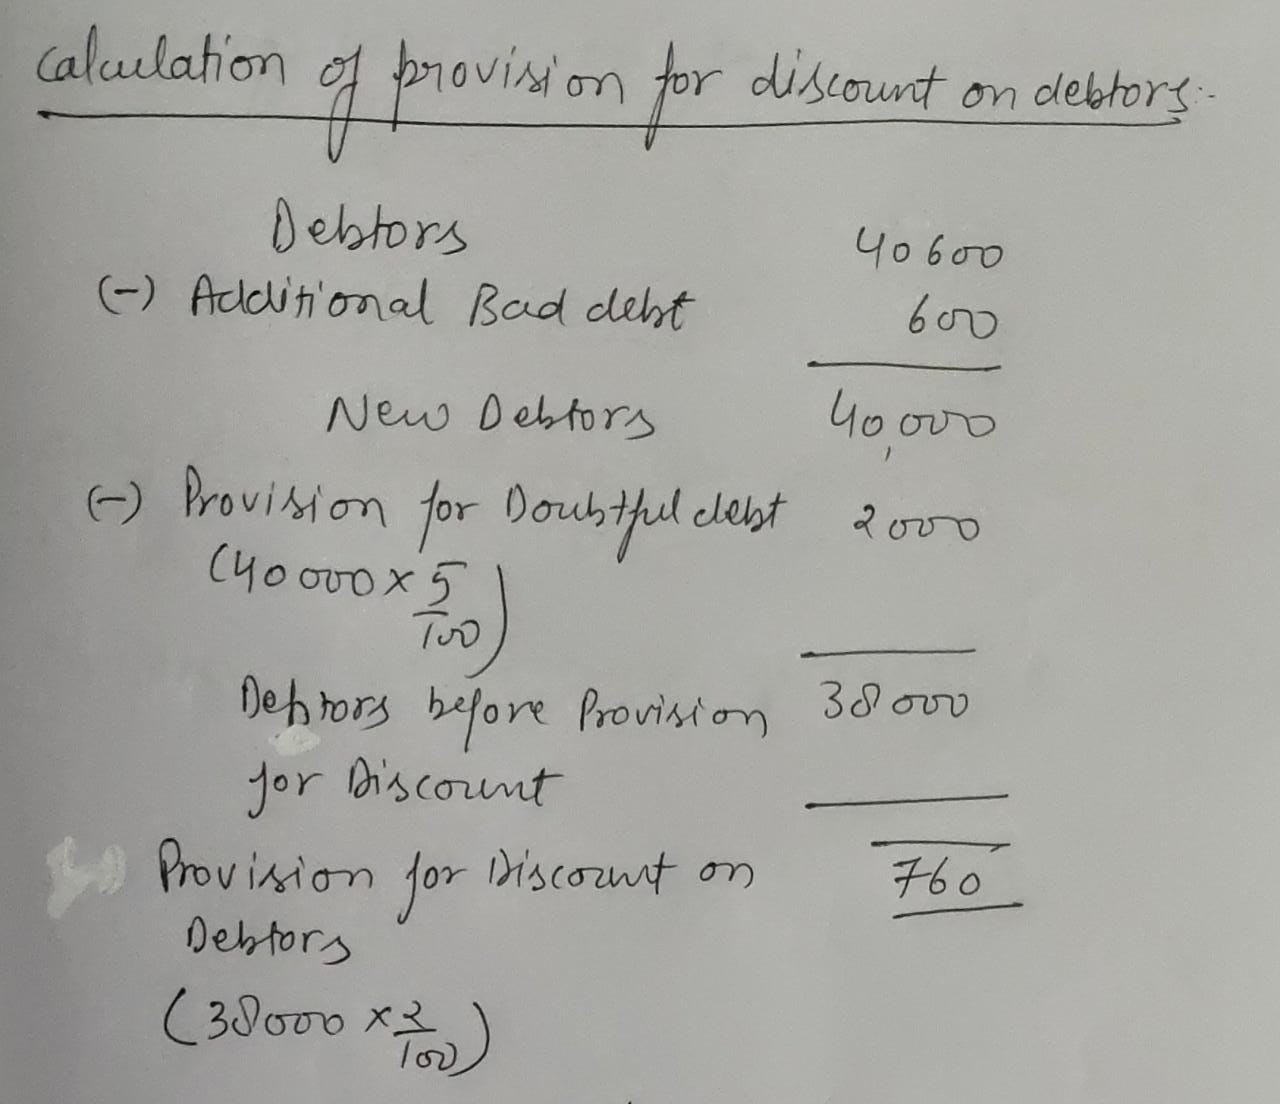 calculation of provision for discount on debtors:-
Debtors 40600
(-) Additional Bad debt 600
New Debtors 40,000
(-) Provision for Doubtful debt 2000
(40000 x 5/100)
Debtors before Provision 38000
for Discount
Provision for Discount on 760
Debtors
(38000 x 2/100)